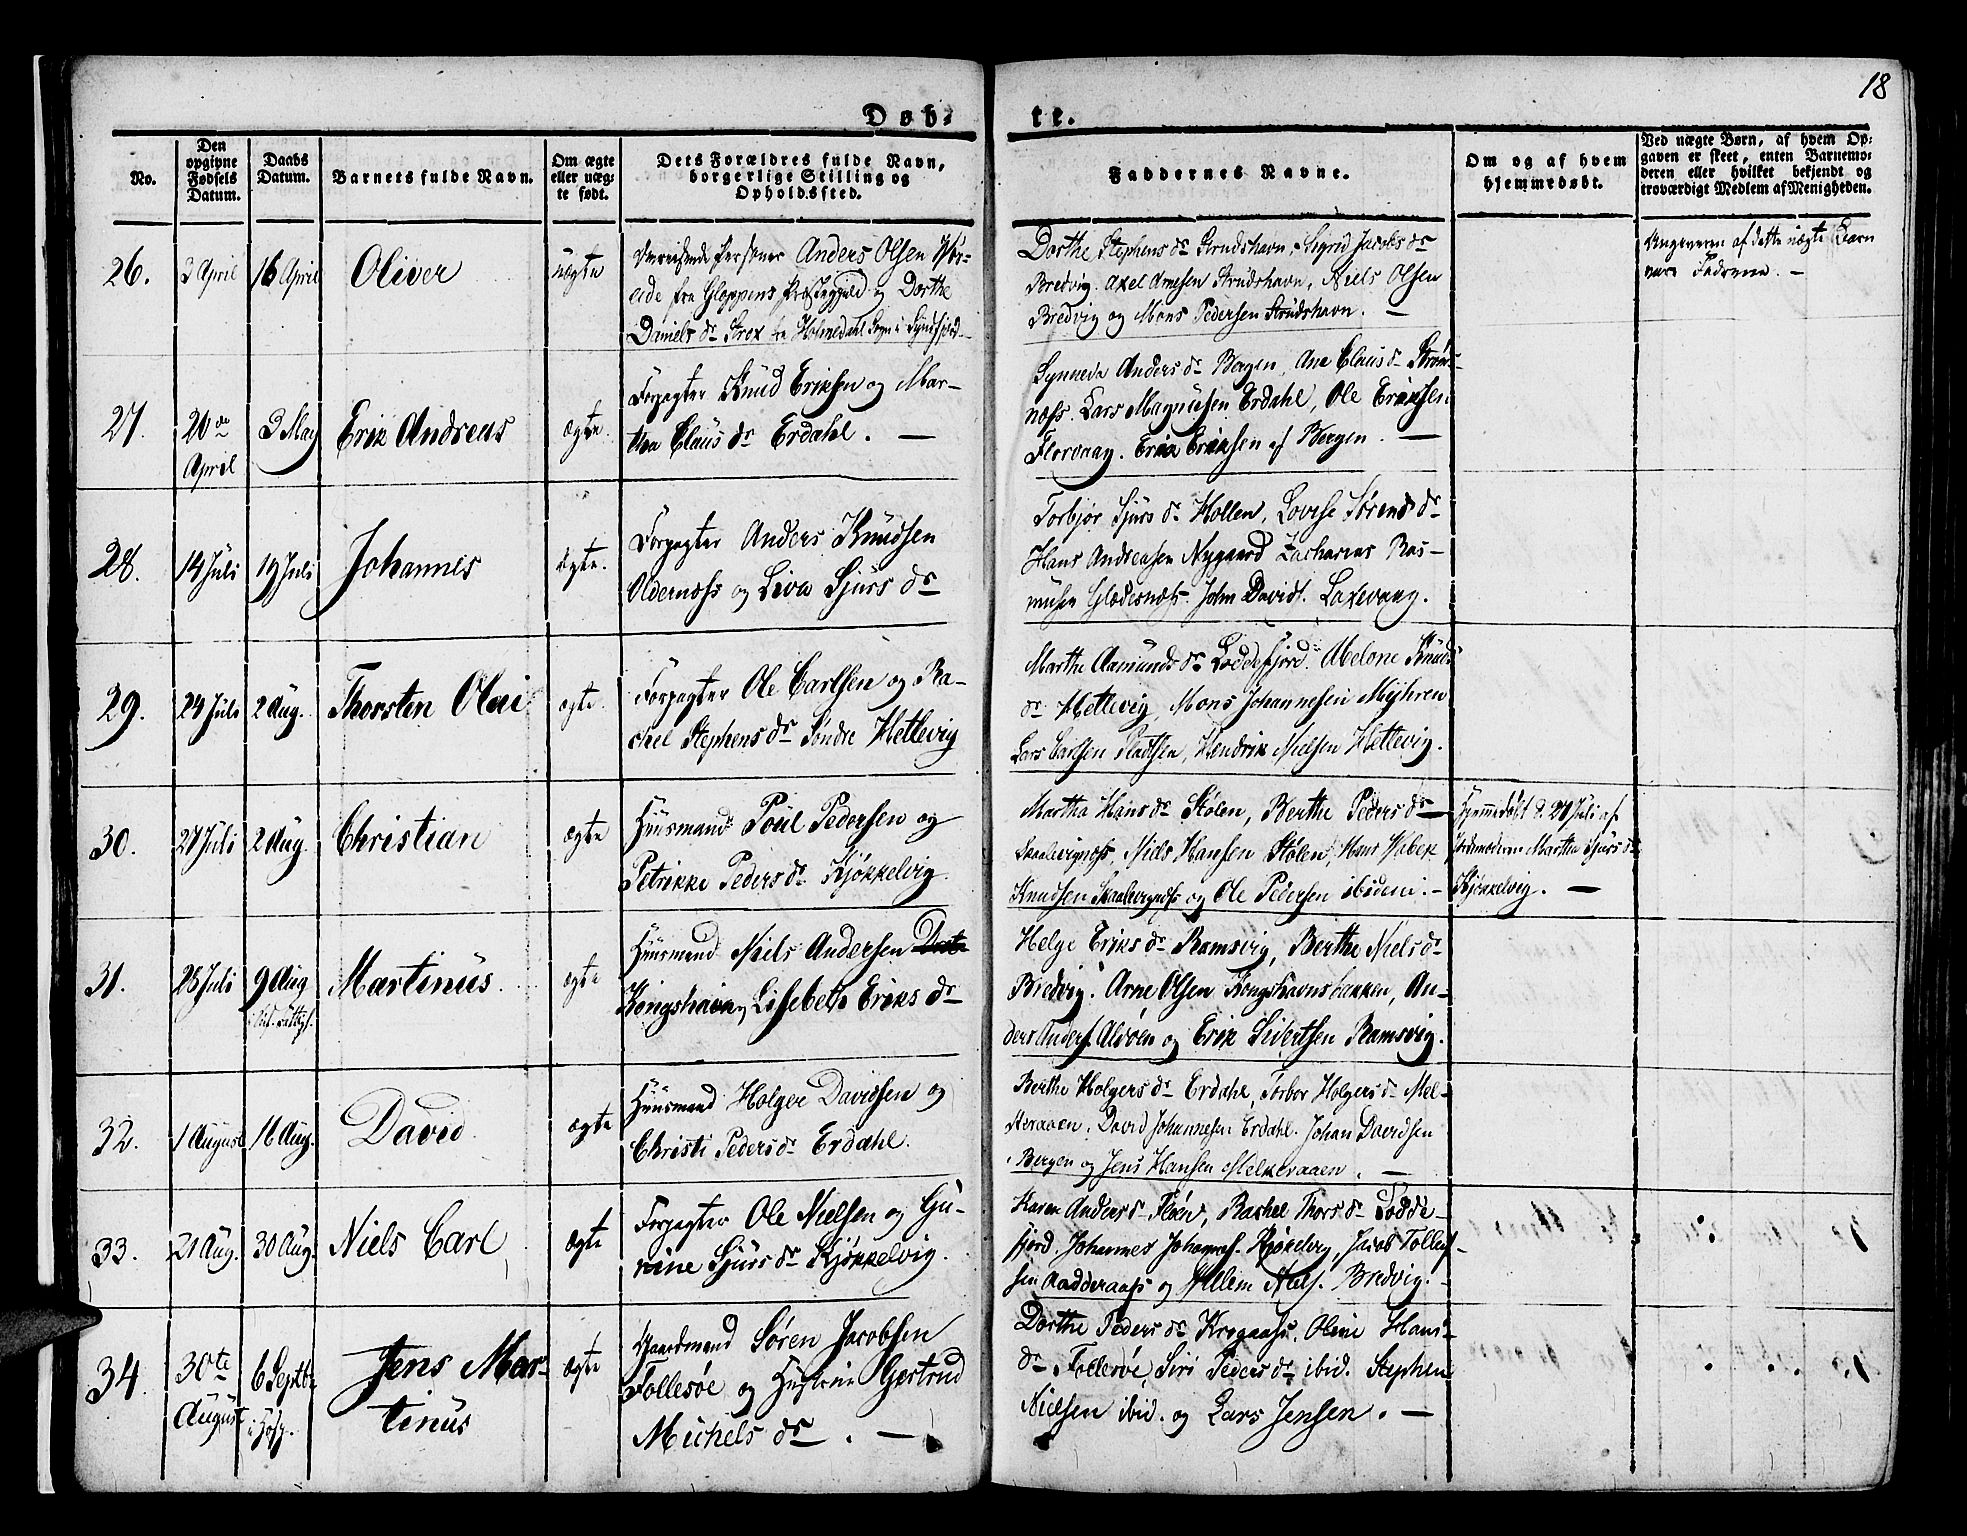 18
Døb-
te.
No.
Den
opgivne
Fødsels
Datum.
Daabs
Datum.
Barnets fulde Navn.
Om ægte
eller uæg-
te født.
Dets Forældres fulde Navn,
borgerlige Stilling og
Opholdssted.
Faddernes Navne.
Om og af hvem
hjemmedøbt.
Ved uægte Børn, af hvem Op-
gaven er skeet, enten Barnemo-
deren eller hvilket bekjendt og
troværdigt Medlem af Menigheden.
26.
3 April
16 April
Oliver
uægte
Personer Anders Olsen
fra Gloppens Præstegjeld og Dorthe
Daniels dr fra Holmedahl Sogn i Syndfjord
Dorthe Stephens dr Strudshavn, Sigrid Jacobs dr
Bredvig. Axel Arnesen Strudshavn, Niels Olsen
Bredvig og Mons Pedersen Strudshavn. —
Angiveren af dette uægte Barn
var Faderne. —
27.
20de
April
3 May
Erik Andreas
ægte.
Forpagter Knud Eriksen og Mar-
tha Claus dr Erdahl. —
Synneva Anders dr Bergen, Ane Claus dr Strøm-
næss. Lars Magnusen Erdahl, Ole Eriksen
Florvaag. Erik Eriksen af Bergen. —
28.
14 Juli
19 Juli
Johannes
ægte.
Forpagter Anders Knudsen
Oldernæss og Siva Sjurs dr
Torbjør Sjurs dr Hollen, Lovise Sørens dr
Hans Andreasen Nygaard Zacharias Ras-
musen Glædesnæss. John Davids. Laxevaag.
29.
24 Juli
2 Aug.
Thorsten Olai
ægte.
Forpagter Ole Carlsen og Ra-
chel Stephens dr Søndre Hettevig
Marthe Aamunds dr Loddefjord. Abelone Knuds
dr Hettevig, Mons Johannesen Myhren
Lars Carlsen Pladsen, Hendrik Nielsen Hettevig.
30.
27 Juli
2 Aug.
Christian
ægte
Huusmand Poul Pedersen og
Petrikke Peders dr Kjøkkelvig.
Martha Hans dr Stølen, Berthe Peders dr
Skaalevignæss, Niels Hansen Stølen, Hans
Knudsen Skaalevignæss og Ole Pedersen ibidem. —
Hjemmedøbt d. 27 Juli af
Jordemoderen Martha Sjurs dr
Kjøkkelvig. —
31.
28 Juli
9 Aug
Martinus.
ægte
Huusmand Niels Andersen
Kongshavn og Lisebeth Eriks dr
Helge Eriks dr Ramsvig, Berthe Niels dr
Bredvig. Arne Olsen Kongshavnsbakken, An-
ders Anders. Alvøen og Erik Sivertsen Ramsvig.
32.
1 August
16 Aug.
David
ægte
Huusmand Holger Davidsen og
Christi Peders dr Erdahl.
Berthe Holgers dr Erdahl, Torbor Holgers dr Mel-
keraaen. David Johannesen Erdahl. Johan Davidsen
Bergen og Jens Hansen Melkeraaen. —
33.
21 Aug.
30 Aug.
Niels Carl
ægte
Forpagter Ole Nielsen og Gu-
rine Sjurs dr Kjøkkelvig.
Karen Anders dr Fløen, Rachel Thors dr Lodde-
fjord. Johannes Johannes. Kjørelvig, Jacob Tollef-
sen og Willem Niels. Bredvig. -
34.
30te
August
6 Septbr
Jens Mar-
tinus
ægte
Gaardmand Søren Jacobsen
Follesøe og Hustrue Gertrud
Michels dr. —
Dorthe Peders dr Krogaass, Oline Hans-
dr Follesøe, Siri Peders dr ibid. Stephen
Nielsen ibid. og Lars Jensen. —